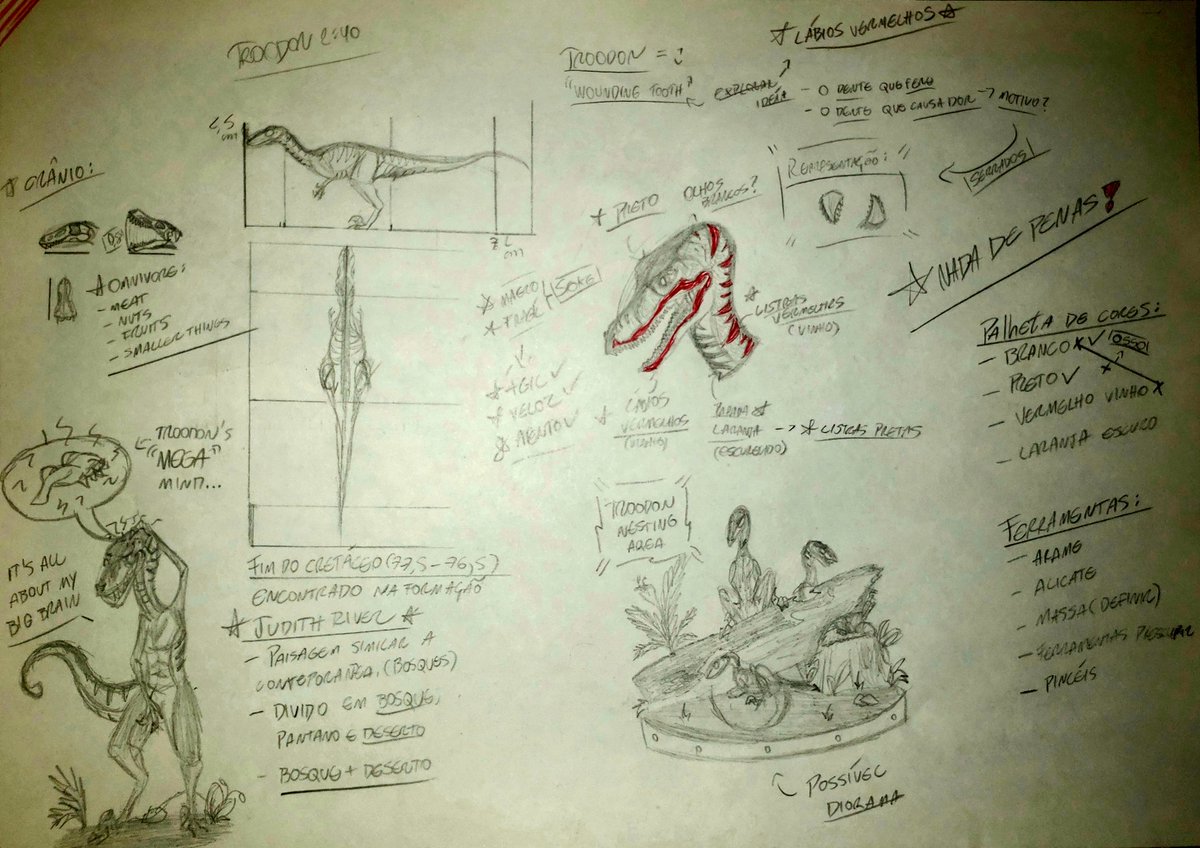 TROODON 1:40
TROODON =
"WOUNDING TOOTH"
EXPLORAR
IDÉIA
☆ LÁBIOS VERMELHOS ☆
- O DENTE QUE FERE
- O DENTE QUE CAUSA DOR → MOTIVO?
SERRADOS
REPRESENTAÇÃO:
☆ NADA DE PENAS!
☆ CRÂNIO:
☆ OMNIVORE:
- MEAT
- NUTS
- FRUITS
- SMALLER THINGS
2,5
cm
7
cm
☆ PRETO
OLHOS
BRANCOS?
☆ MAGRO
☆ ÁGIL ✓
☆ VELOZ ✓
☆ ATENTO ✓
☆ LISTRAS
VERMELHAS
(VINHO)
☆ LÁBIOS
VERMELHOS
(VINHO)
LARANJA → ☆ LISTRAS PRETAS
(ESCURECIDO)
PALHETA DE CORES:
- BRANCO X ✓ (OSSO)
- PRETO ✓
- VERMELHO VINHO X
- LARANJA ESCURO
TROODON'S
"MEGA"
MIND...
IT'S ALL
ABOUT MY
BIG BRAIN
FIM DO CRETÁCEO (77,5 - 76,5)
ENCONTRADO NA FORMAÇÃO
☆ JUDITH RIVER ☆
- PAISAGEM SIMILAR A
CONTEPORANEA, (BOSQUES)
- DIVIDO EM BOSQUE,
PANTANO E DESERTO
- BOSQUE + DESERTO
TROODON
NESTING
AREA
POSSÍVEL
DIORAMA
FERRAMENTAS:
- ARAME
- ALICATE
- MASSA (DEFINIR)
- FERRAMENTAS
- PINCÉIS